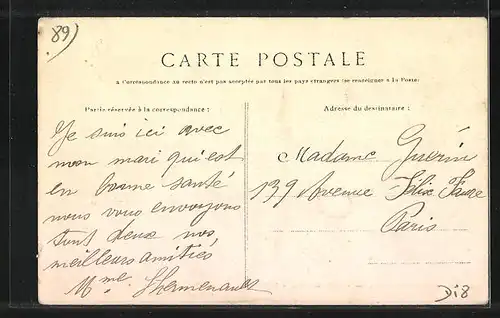 89)
CARTE POSTALE
La Correspondance au recto n'est pas acceptée par tous les pays étrangers (se renseigner à la Poste)
Partie réservée à la correspondance :
Adresse du destinataire :
Je suis ici avec
mon mari qui est
en bonne santé
nous vous envoyons
tout deux nos
meilleurs amitiés
Mme Lhermenault
Madame Guérin
139 Avenue Félix Faure
Paris
Di8